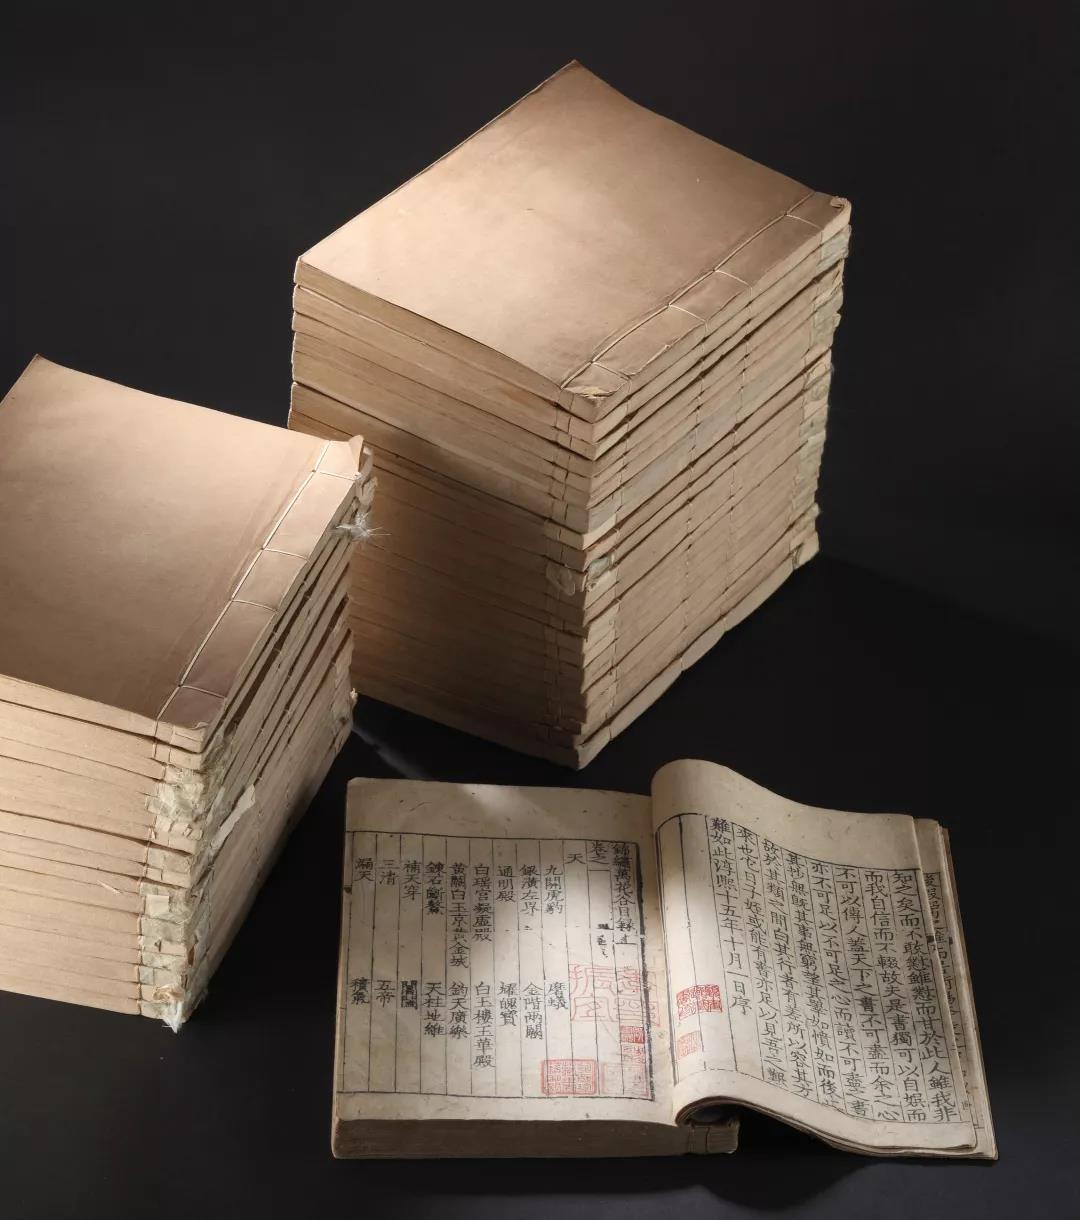 知之矣而不敢懟雖懟而甘於此人雖我非
而我自信而不輟故夫是書獨可以自娛而
不可以傳人蓋天下之書不可盡而余之心
亦不可足以不可足之心而讀不可盡之書
其抄無既其集無窮
故於其類之間自其行者有差所以容其方
來也它日子姪或能有書亦足以見吾之艱
難如此淳熙十五年十月一日序
錦繡萬花谷目錄
卷之一
天
九關虎豹 磨蟻
銀潢左界 金階兩
通明殿 耀魄寶
白瑤宮凝虛殿 白玉樓玉華殿
白玉京黃金城 鈞天廣樂
鍊石斷鰲 天柱地維
補天穿 閶闔
三清 五帝
漏天 積氣